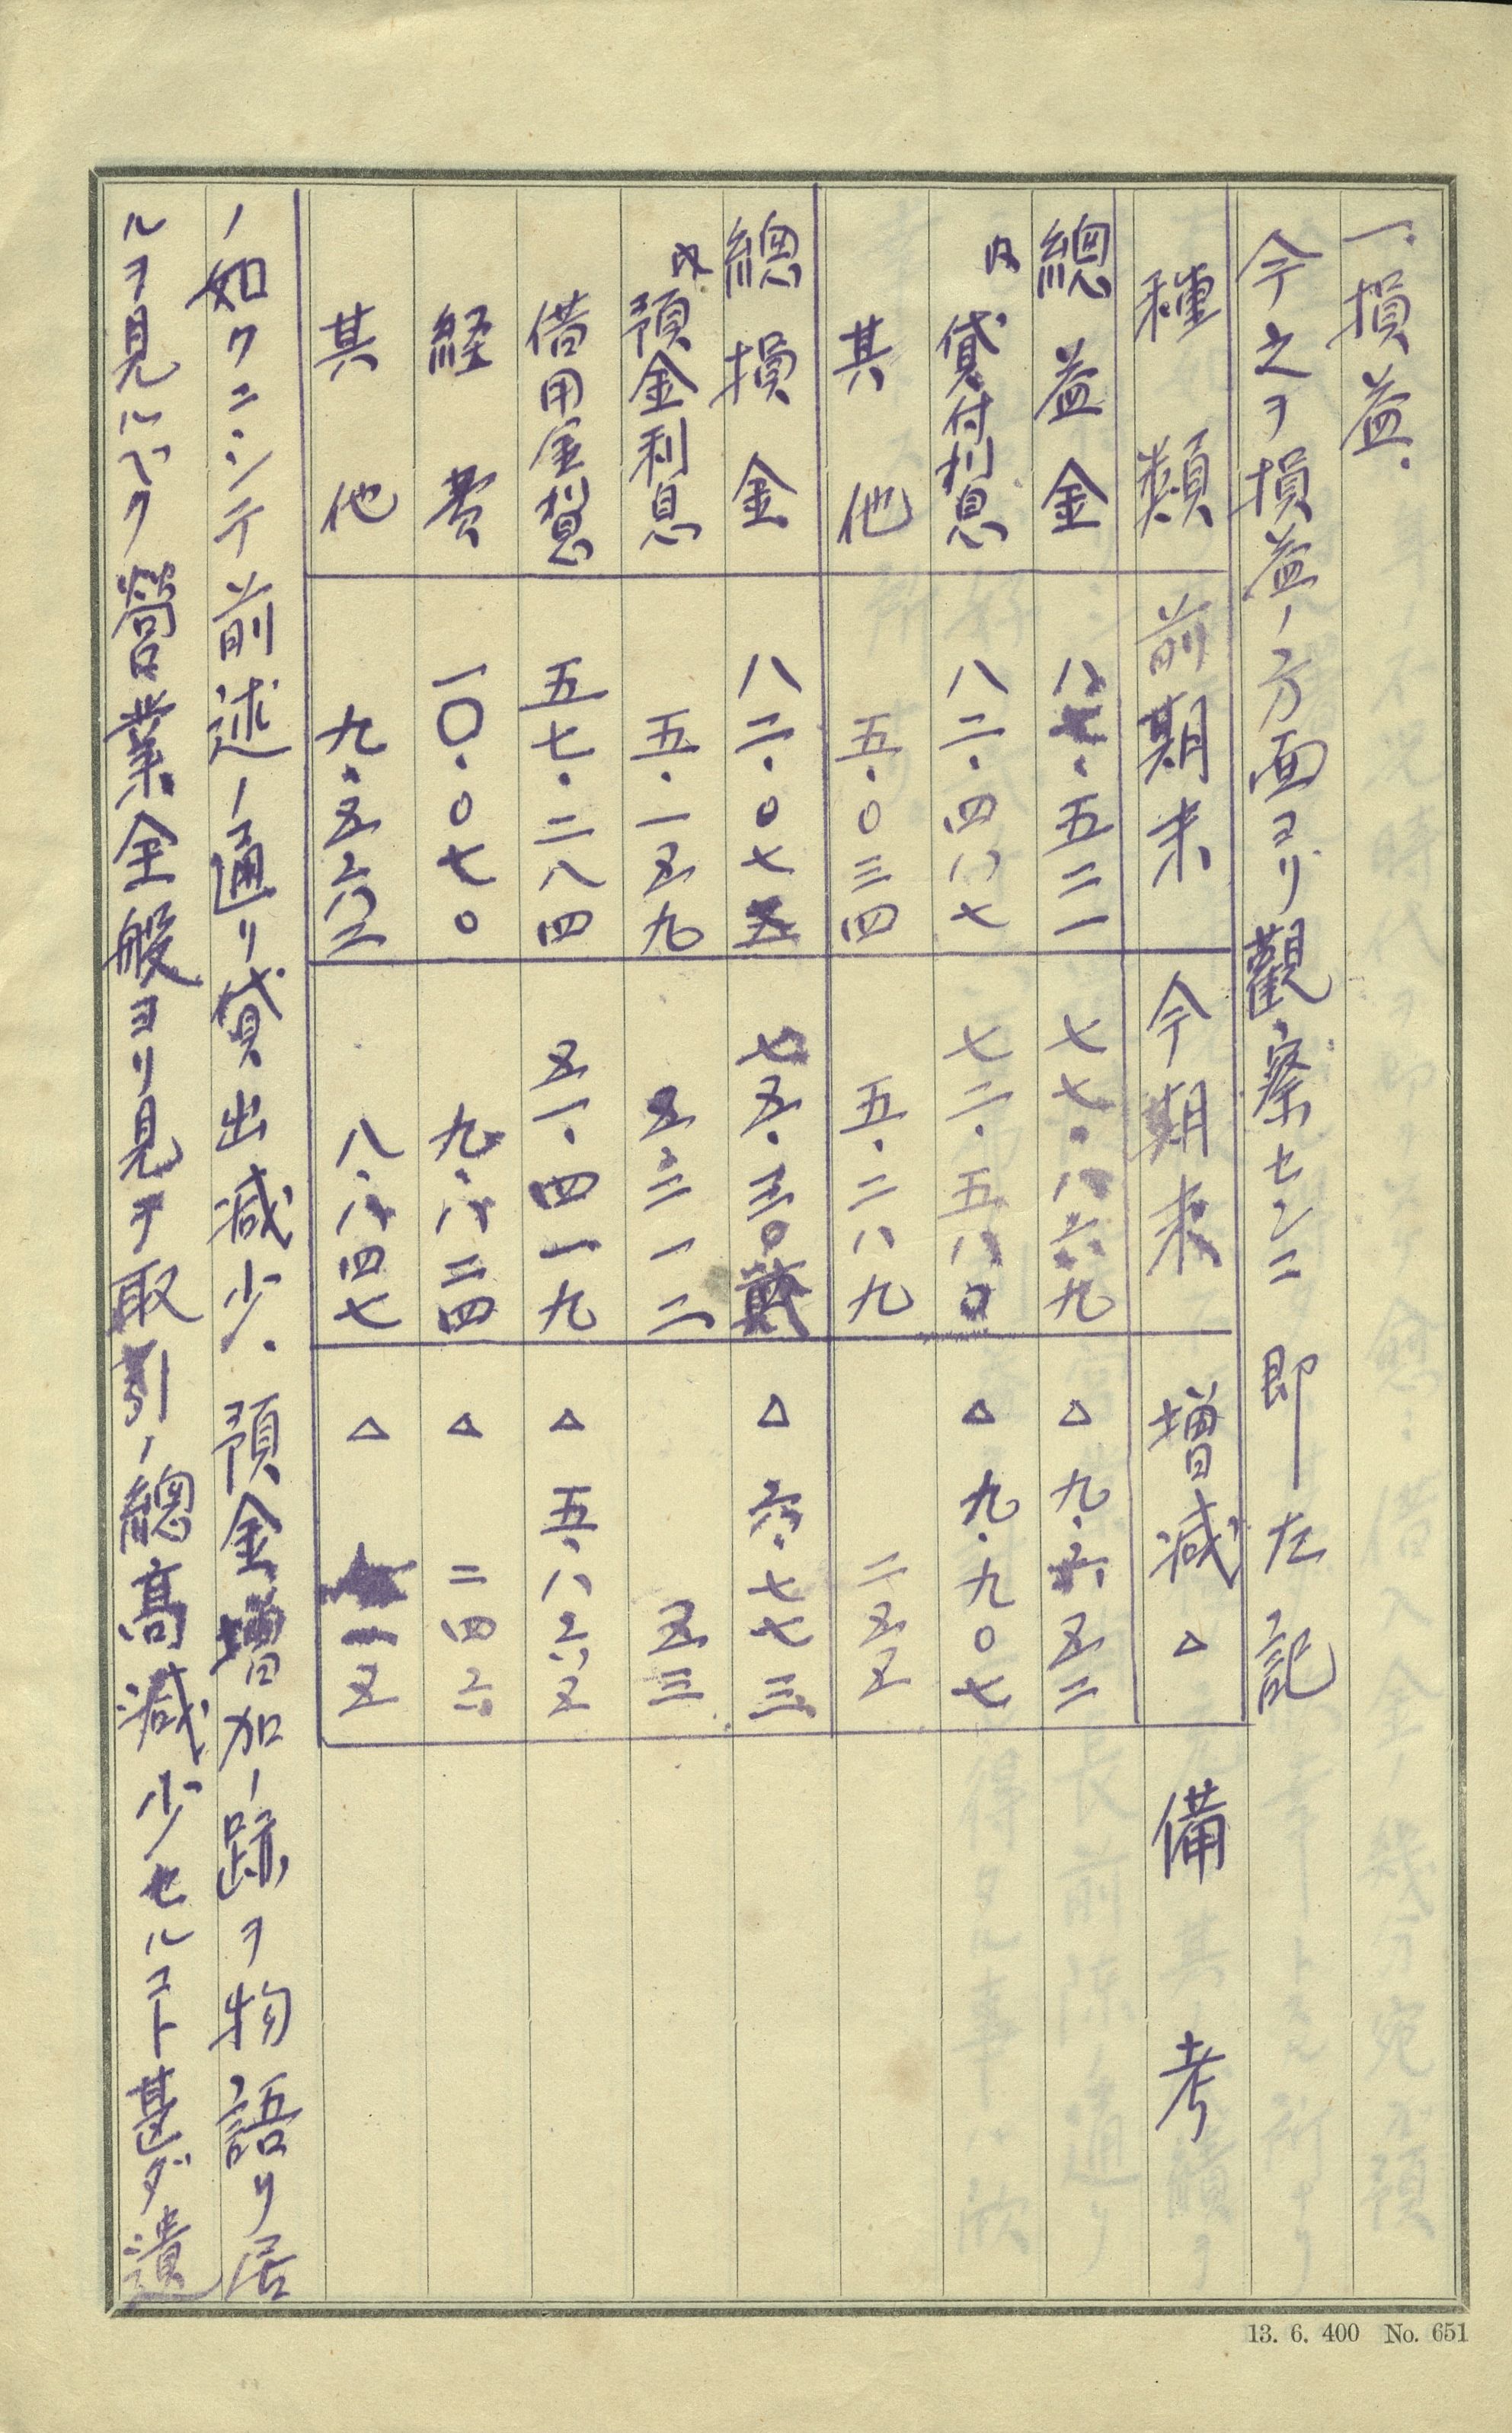 一、損益、
今之ヲ損益ノ方面ヨリ觀察センニ即左記
種類 前期末 今期末 増減△ 備考
總益金 八七、五二一 七七、八六九 △九、六五二
内 貸付利息 八二、四八七 七二、五八〇 △九、九〇七
其他 五、〇三四 五、二八九 二五五
總損金 八二、〇七五 七五、三〇弐 △六、七七三
内 預金利息 五、一五九 五、二一二 五三
借用金利息 五七、二八四 五一、四一九 △五、八六五
経費 一〇、〇七〇 九、八二四 △二四六
其他 九、五六二 八、八四七 △一五
ノ如クニシテ前述ノ通リ貸出減少、預金増加ノ跡ヲ物語リ居
ルヲ見ルベク營業全般ヨリ見テ取引ノ總高減少セルコト甚ダ遺
13. 6. 400 No. 651